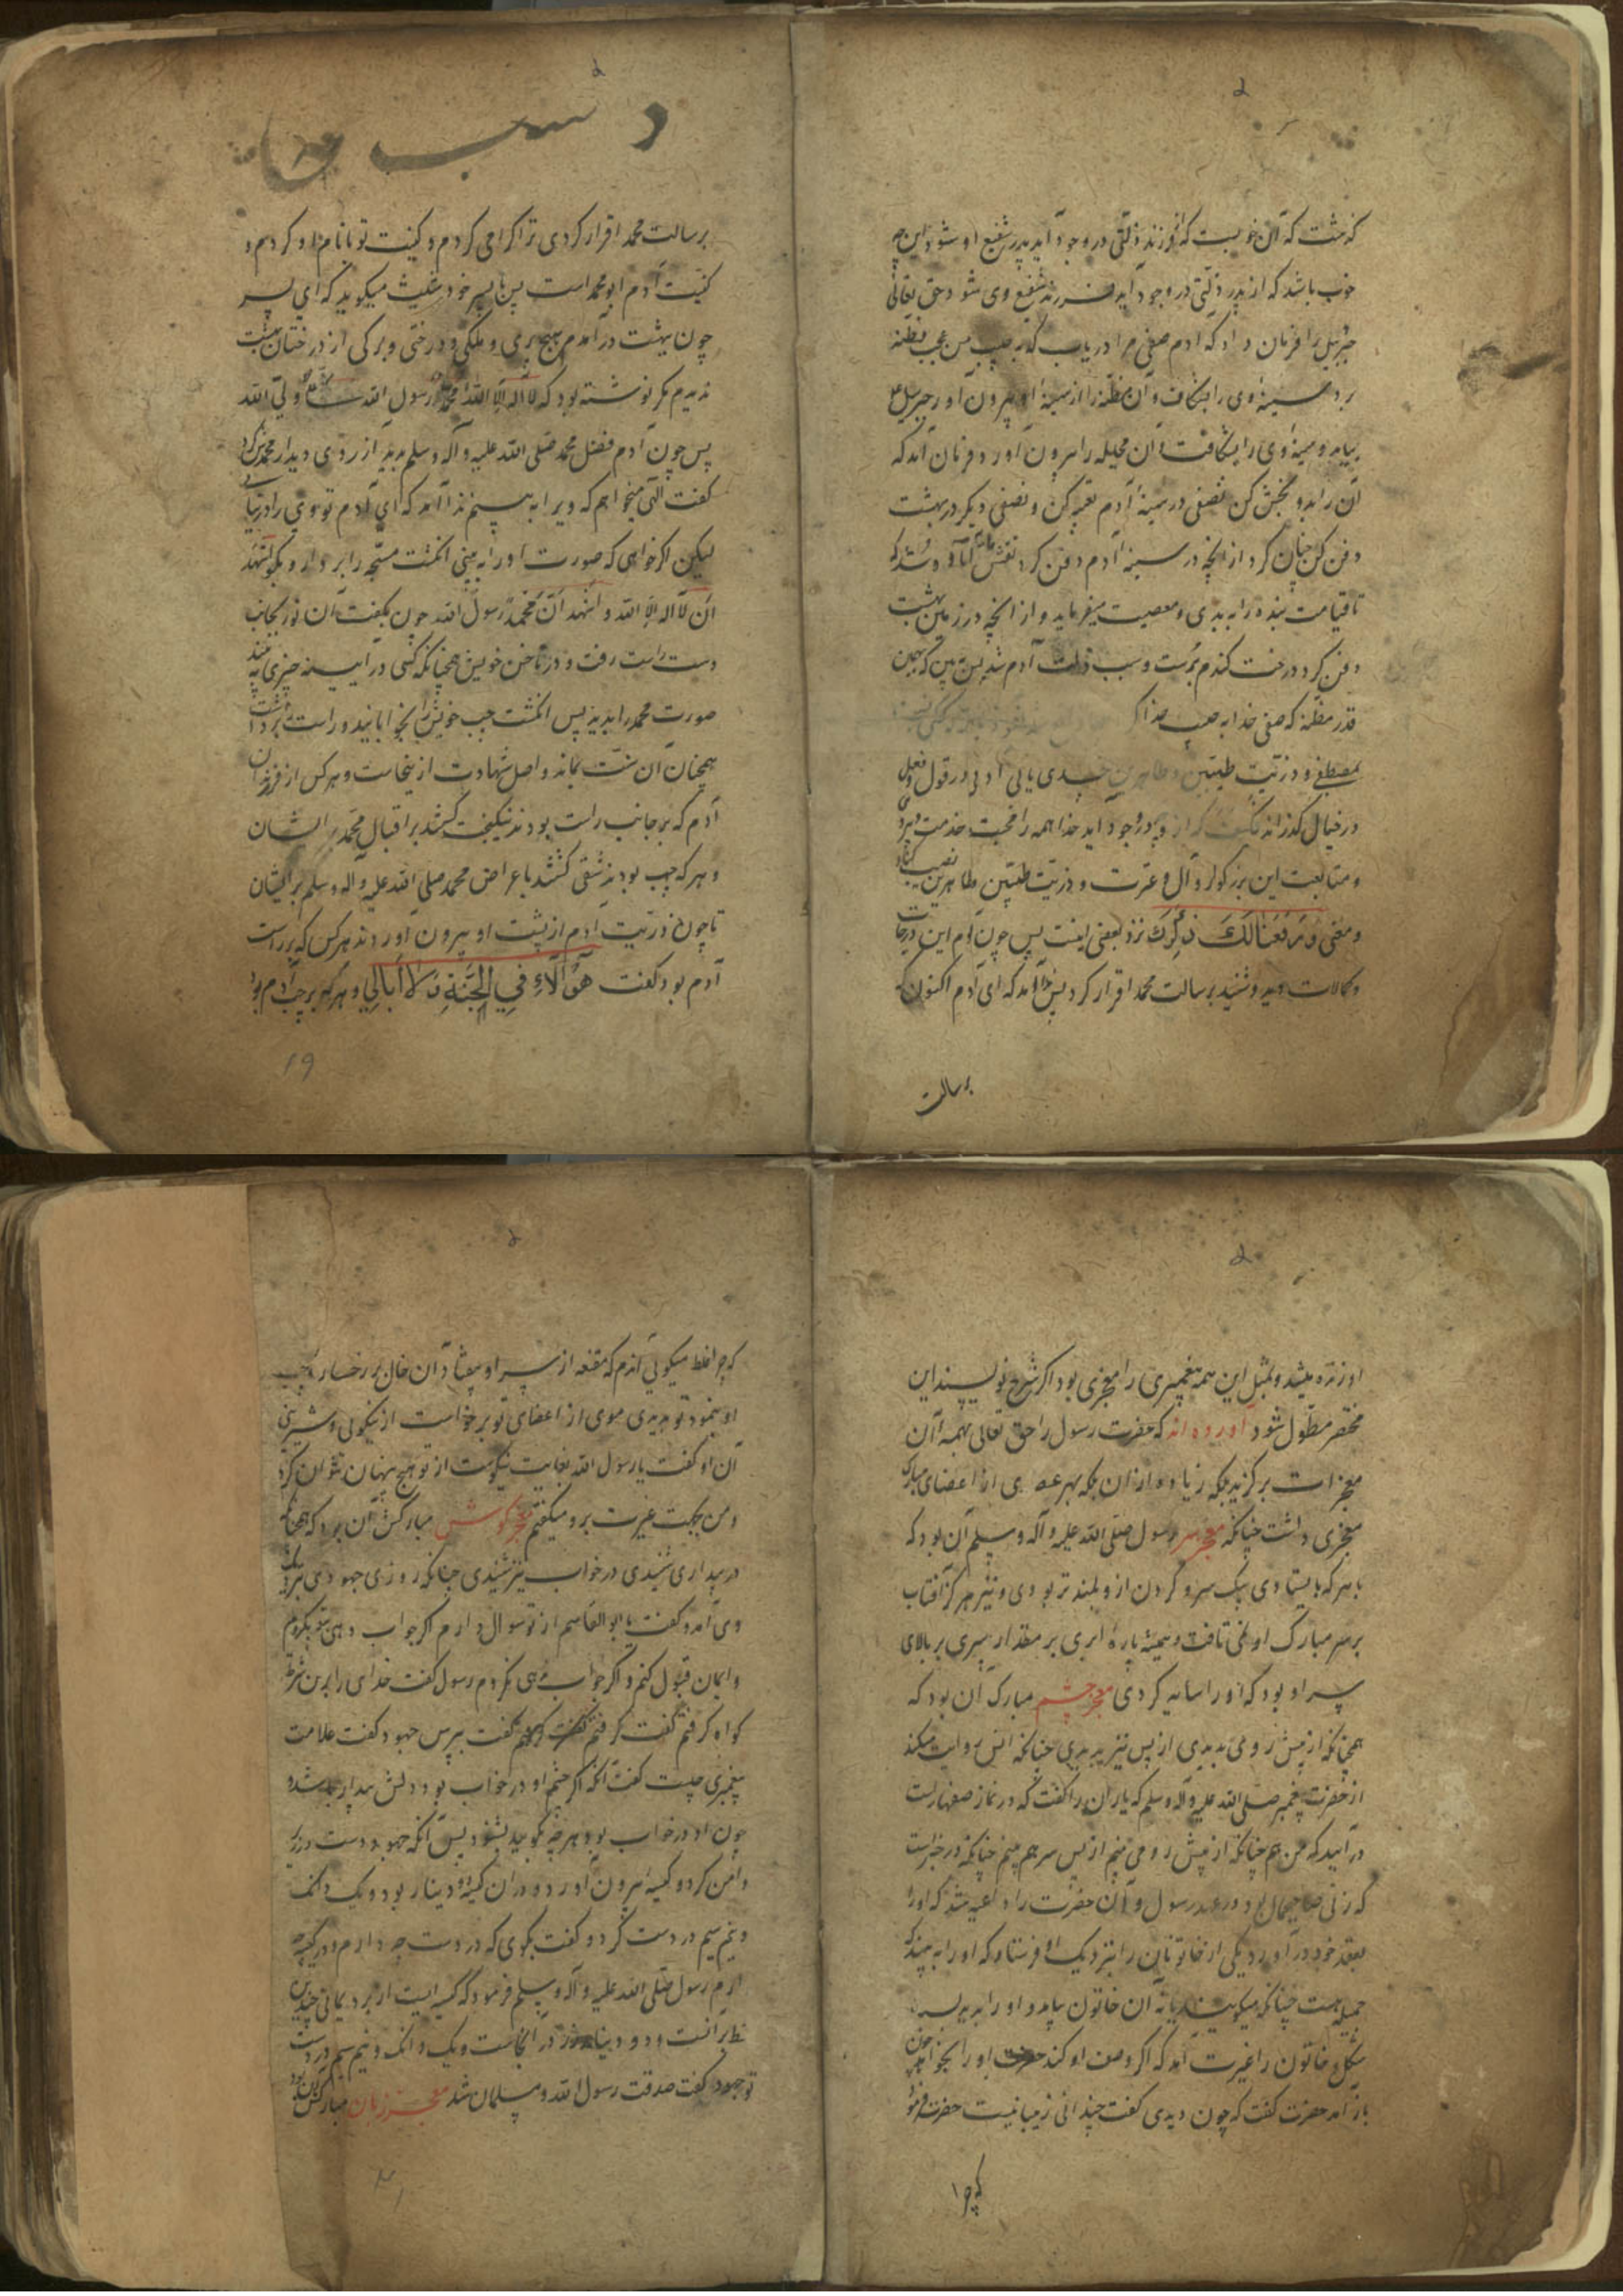 که مثت که آن خوبست که از فرزند ذلتی در وجود آید پدر شفیع او شود این چه
خوب باشد که از پدر ذلتی در وجود آید فرزند شفیع وی شود حق تعالی
جبرئیل را فرمان داد که ادم صفی مرا دریاب که به حبیب من عجب مظنه
برد سینه وی را بشکاف و آن مظنه را از سینه او بیرون اور جبرئیل ع
بیامد و سینه وی را بشکافت و آن مخیله را بیرون آورد فرمان آمد که
آن را بدو بخش کن نصفی در سینه آدم تعبیه کن و نصفی دیگر در بهشت
دفن کن چنان کرد از آنچه در سینه آدم دفن کرد نفس اماره شد که
تا قیامت بنده را به بدی و معصیت میفرماید و از آنچه در زمین بهشت
دفن کرد درخت گندم برست و سبب ذلت آدم شد پس ببین که بهمین
قدر مظنه که صفی خدا به حبیب خدا
مصطفی و ذریت طیبین و طاهرین در قول و فعل
در خیال گذراند از وی در وجود آید خدا همه را محبت و خدمت
و متابعت این بزرگوار و آل و عترت و ذریت طیبین طاهرین نصیب کناد
و معنی وَرَفَعْنَا لَكَ ذِكْرَكَ نزد بعضی اینست پس چون آدم این درجات
و کمالات دید و شنید برسالت محمد اقرار کرد پس ندا آمد که ای آدم اکنون که
برسالت
برسالت محمد اقرار کردی ترا گرامی کردم و کنیت تو بانام او کردم و
کنیت آدم ابو محمد است پس با پسر خود شیث میگوید که ای پسر
چون ببهشت درآمدم هیچ بری و ملکی و درختی و برگی از درختان بهشت
ندیدم مگر نوشته بود که لا اله الا الله محمد رسول الله علی ولی الله
پس چون آدم فضل محمد صلی الله علیه و آله وسلم بدید آرزوی دیدار محمد کرد
گفت الهی میخواهم که ویرا به بینم ندا آمد که ای آدم تو وی را در نیابی
لیکن اگر خواهی که صورت او را به بینی انگشت مسبحه را بردار و بگو اشهد
ان لا اله الا الله و اشهد ان محمدا رسول الله چون بگفت آن نور بجانب
دست راست رفت و در ناخن خویش همچنانکه کسی در آیینه چیزی بیند
صورت محمد را بدید پس انگشت چپ خویش را بخوابانید و راست را برداشت
همچنان آن سنت بماند و اصل شهادت از ینجاست و هر کس از فرزندان
آدم که بر جانب راست بودند نیکبخت گشتند بر اقبال محمد بر ایشان
و هر که چپ بودند شقی گشتند باعراض محمد صلی الله علیه و آله وسلم بر ایشان
تا چون ذریت ادم از پشت او بیرون آوردند هر کس که بر راست
آدم بود گفت هَؤُلَاءِ فِي الْجَنَّةِ وَلَا أُبَالِي و هر که بر چپ آدم بود
19
او زنده میشد و بمثل این همه پیغمبری را معجزی بود اگر شرح نویسند این
مختصر مطول شود آورده اند که حضرت رسول را حق تعالی بهمه آن
معجزات برگزید بلکه زیاده از ان بلکه بهر عضوی از اعضای مبارک
معجزی داشت چنانکه معجز سر رسول صلی الله علیه و آله وسلم آن بود که
با هر که بایستادی بیک سر و گردن از و بلندتر بودی و نیز هرگز آفتاب
بر سر مبارک او نمی تافت و همیشه پاره ابری بر مقدار سپری بر بالای
سر او بود که او را سایه کردی معجز چشم مبارک آن بود که
همچنانکه از پیش روی بدیدی از پس نیز بدیدی چنانکه انس روایت میکند
از حضرت پیغمبر صلی الله علیه و آله وسلم که یاران را گفت که در نماز صفها راست
درآیید که من هم چنانکه از پیش رو می بینم از پس سر هم بینم چنانکه در خبر است
که زنی صاحبجمال بود در عهد رسول و آن حضرت را داعیه شد که او را
بعقد خود درآورد یکی از خاتونان را بنزدیک او فرستاد که او را به بیند که
جمیله هست چنانکه میگویند یا نه آن خاتون بیامد و او را بدید
شکل خاتون را غیرت آمد که اگر وصف او کند حضرت او را بخواهد چون
باز آمد حضرت گفت که چون دیدی گفت چندانی زیبا نیست حضرت فرمود
که چرا
که چرا غلط میگویی آندم که مقنعه از سر او بیفتاد آن خال بر رخسار چپ
او بنمود تو بدیدی موی از اعضای تو برخواست از نیکویی و شیرینی
آن او گفت یا رسول الله بغایت نیکوست از تو هیچ پنهان نتوان کرد
و من بجهت غیرت برو میگفتم معجز گوش مبارکش آن بود که همچنانکه
در بیداری شنیدی در خواب نیز شنیدی چنانکه روزی جهودی بنزدیک
وی آمد و گفت یا ابوالقاسم از تو سوال دارم اگر جواب دهی بتو بگروم
و ایمان قبول کنم و اگر جواب ندهی نگروم رسول گفت خدای را بدین شرط
گواه گرفتم گفت گرفتم گفت بپرس جهود گفت علامت
پیغمبری چیست گفت آنکه اگر چشم او در خواب بود دلش بیدار باشد و
چون او در خواب بود هر چه گویید بشنود پس آنکه جهود دست در زیر
دامن کرد و کیسه بیرون آورد و در ان کیسه دو دینار بود و یک دانگ
و نیم سیم در دست کرد و گفت بگوی که در دست چه دارم و در کیسه چه
دارم رسول صلی الله علیه و آله وسلم فرمود که کیسه ایست از برد یمانی چندین
خط بر آنست و دو دینار زر در آنجاست و یک دانگ و نیم سیم در دست
تو جهود گفت صدقت رسول الله و مسلمان شد معجز زبان مبارکش آن بود